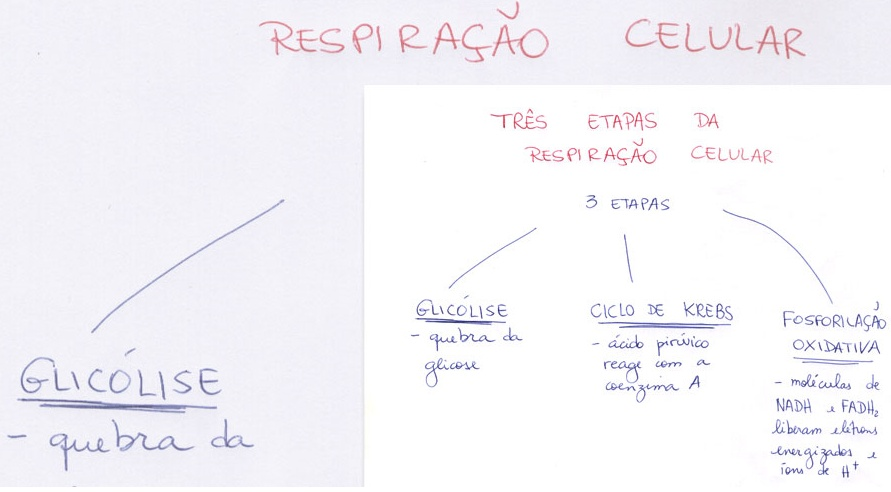 RESPIRAÇÃO CELULAR
GLICÓLISE
- quebra da
TRÊS ETAPAS DA
RESPIRAÇÃO CELULAR
3 ETAPAS
GLICÓLISE
- quebra da
glicose
CICLO DE KREBS
- ácido pirúvico
reage com a
coenzima A
FOSFORILAÇÃO
OXIDATIVA
- moléculas de
NADH e FADH₂
liberam elétrons
energizados e
íons de H⁺